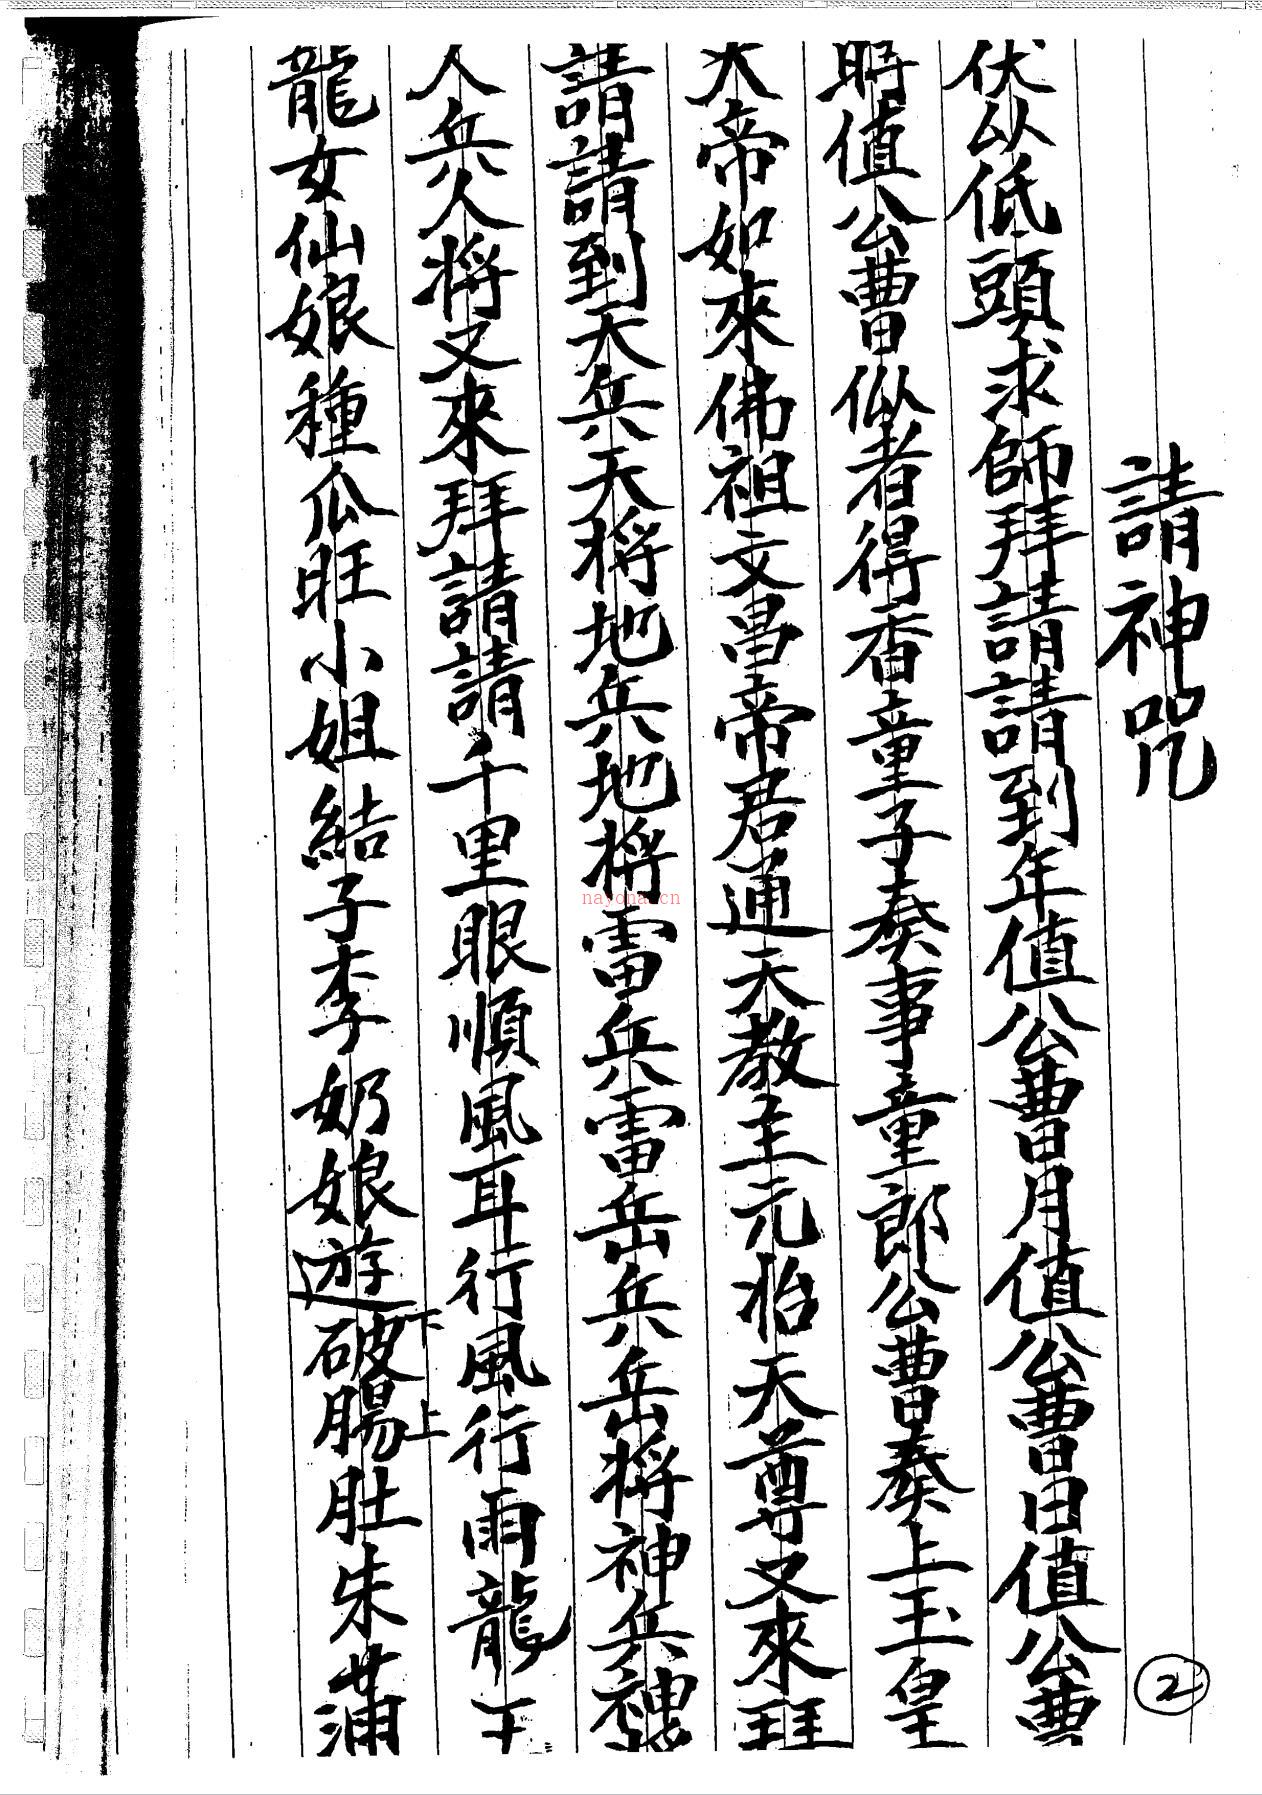 請神咒
伏以低頭求師拜請請到年值公曹月值公曹日值公曹
時值公曹似者得香童子奏事童郎公曹奏上玉皇
大帝如來佛祖文昌帝君通天教主元始天尊又來拜
請請到天兵天將地兵地將雷兵雷岳兵岳將神兵
人兵人將又來拜請請千里眼順風耳行風行雨龍下
龍女仙娘種瓜旺小姐結子李奶娘遊破腸肚朱蒲
下
上
2
nayona.cn